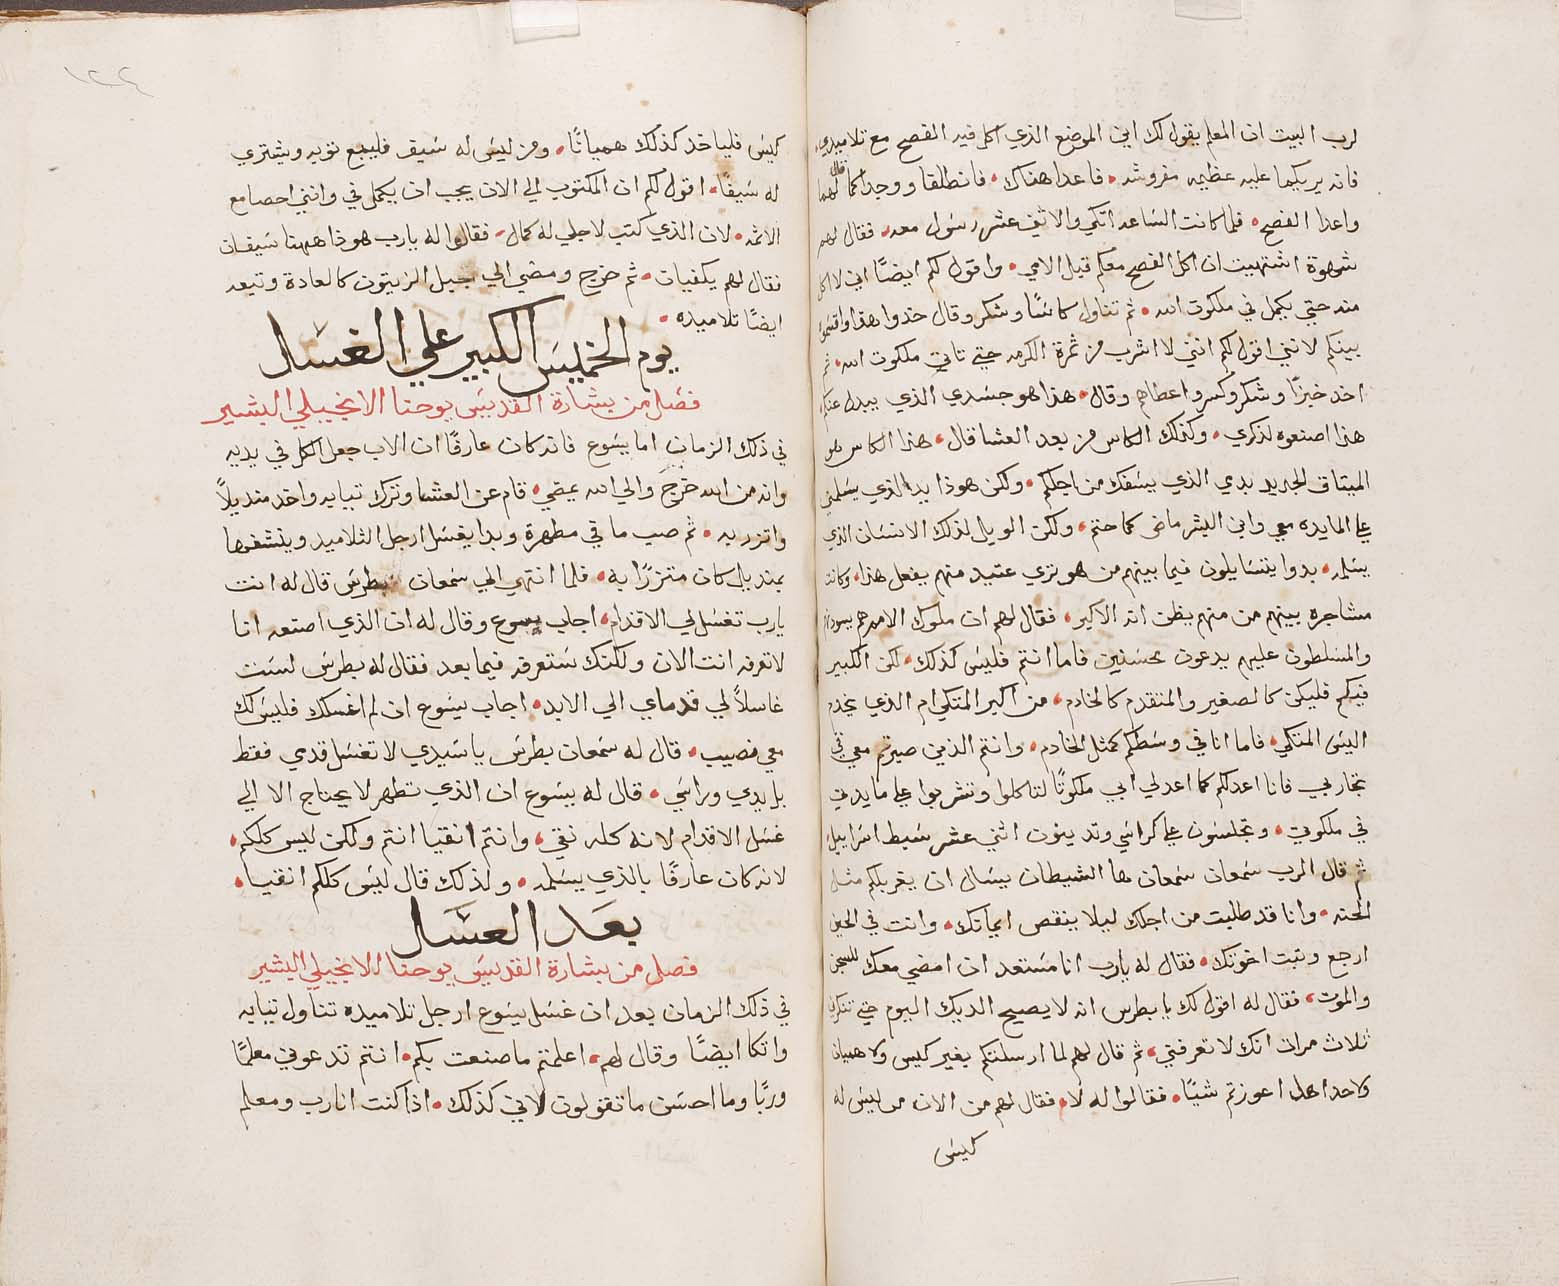 لرب البيت ان المعلم يقول لك اين الموضع الذي اكل فيه الفصح مع تلاميدي
فانه يريكما عليه عظيمه مفروشه • فاعدا هناك • فانطلقا ووجدا كما قال لهما
واعدا الفصح • فلما كانت الساعه اتكي والاثني عشر رسول معه • فقال لهم
شهوة اشتهيت ان اكل الفصح معكم قبل الامي • واقول لكم ايضًا اني لا اكل
منه حتي يكمل في ملكوت الله • ثم تناول كاسًا وشكر وقال خدوا هذا واقسموا
بينكم لانني اقول لكم انني لا اشرب من ثمرة الكرمه حتي تاتي ملكوت الله • ثم
اخد خبزًا وشكر وكسر واعطاهم وقال • هذا هو جسدي الذي يبدل عنكم
هذا اصنعوه لذكري • وكذلك الكاس من بعد العشا قال • هذا الكاس هو
الميتاق الجديد بدمي الذي يسفك من اجلكم • ولكن هوذا يد الذي يسلمني
علي المايده معي وابن البشر ماض كما حتم • ولكن الويل لذلك الانسان الذي
يسلمه • بدوا يتسايلون فيما بينهم من هو تري عتيد منهم يفعل هذا • وكانت
مشاجره بينهم من منهم يظن انه الاكبر • فقال لهم ان ملوك الامم هم يسودنهم
والمسلطون عليهم يدعون محسنين فاما انتم فليس كذلك • لكن الكبير
فيكم فليكن كالصغير والمتقدم كالخادم • من اكبر المتكي ام الذي يخدم
اليس المتكي • فاما انا في وسطكم كمثل الخادم • وانتم الذين صبرتم معي في
تجاربي فانا اعد لكم كما اعد لي ابي ملكوتًا لتاكلوا وتشربوا علي مايدتي
في ملكوتي • وتجلسون علي كراسي وتدينون اثني عشر سبط اسراييل
ثم قال الرب سمعان سمعان ها الشيطان يسال ان يغربلكم مثل
الحنطه • وانا قد طلبت من اجلك ليلا ينقص ايمانك • وانت في الحين
ارجع وثبت اخوتك • فقال له يارب انا مستعد ان امضي معك للسجن
والموت • فقال له اقول لك يا بطرس انه لا يصيح الديك اليوم حتي تنكرني
ثلاث مرات انك لا تعرفني • ثم قال لهم لما ارسلتكم بغير كيس ولا هميان
ولا حدا هل اعوزتم شيًا • فقالوا له لا • فقال لهم من الان من ليس له
كيس
١٢٤
كيس فلياخد كذلك هميانًا • ومن ليس له سيف فليبع توبه ويشتري
له سيفًا • اقول لكم ان المكتوب الي الان يجب ان يكمل في وانني احصا مع
الاثمه • لان الذي كتب لاجلي له كمال • فقالوا له يارب هوذا ههنا سيفان
فقال لهم يكفيان • ثم خرج ومضي الي جبل الزيتون كالعادة وتبعه
ايضًا تلاميده •
يوم الخميس الكبير علي الغسال
فصل من بشارة القديس يوحنا الانجيلي البشير
في ذلك الزمان اما يسوع فانه كان عارفًا ان الاب جعل الكل في يديه
وانه من الله خرج والي الله يمضي • قام عن العشا وترك تيابه واخد منديلاً
واتزر به • ثم صب ما في مطهرة وبدا يغسل ارجل التلاميد وينشفها
بمنديل كان متزرًا به • فلما انتهي الي سمعان بطرس قال له انت
يارب تغسل لي الاقدام • اجاب يسوع وقال له ان الذي اصنعه انا
لا تعرفه انت الان ولكنك ستعرفه فيما بعد فقال له بطرس لست
غاسلاً لي قدماي الي الابد • اجاب يسوع ان لم اغسلك فليس لك
معي نصيب • قال له سمعان بطرس يا سيدي لا تغسل قدمي فقط
بل يدي وراسي • قال له يسوع ان الذي تطهر لا يحتاج الا الي
غسل الاقدام لانه كله نقي • وانتم انقيا انتم ولكن ليس كلكم •
لانه كان عارفًا بالذي يسلمه • ولذلك قال ليس كلكم انقيا •
بعد الغسال
فصل من بشارة القديس يوحنا الانجيلي البشير
في ذلك الزمان بعد ان غسل يسوع ارجل تلاميده تناول تيابه
واتكا ايضًا وقال لهم • اعلمتم ما صنعت بكم • انتم تدعوني معلمًا
وربًا وما احسن ما تقولون لاني كذلك • اذا كنت انا رب ومعلم